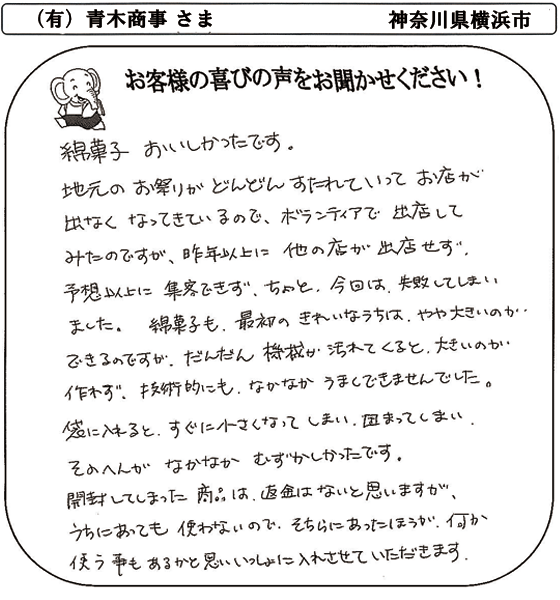 （有）青木商事 さま
神奈川県横浜市
お客様の喜びの声をお聞かせください！
綿菓子 おいしかったです。
地元の お祭りが どんどん すたれていって お店が
出なく なってきているので、ボランティアで 出店して
みたのですが、昨年以上に 他の店が 出店せず、
予想以上に 集客できず、ちょっと、今回は、失敗してしまい
ました。 綿菓子も、最初の きれいなうちは、やや大きいのが
できるのですが、だんだん 機械が 汚れてくると、大きいのが
作れず、技術的にも、なかなか うまくできませんでした。
袋に入れると、すぐに小さくなって しまい、固まってしまい、
そのへんが なかなか むずかしかったです。
開封してしまった 商品は、返金はないと思いますが、
うちにあっても 使わないので、そちらにあったほうが、何か
使う事もあるかと思い いっしょに入れさせていただきます。